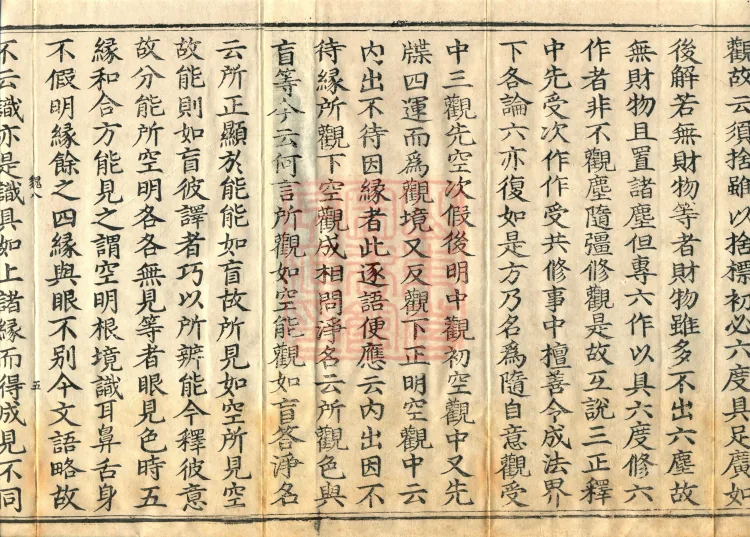 觀故云須捨雖以捨標初必六度具足廣如
後解若無財物等者財物雖多不出六塵故
無財物且置諸塵但專六作以具六度修六
作者非不觀塵隨彊修觀是故互說三正釋
中先受次作作受共修事中檀善令成法界
下各論六亦復如是方乃名爲隨自意觀受
中三觀先空次假後明中觀初空觀中又先
牒四運而爲觀境又反觀下正明空觀中云
內出不待因緣者此逐語便應云內出因不
待緣所觀下空觀成相問淨名云所觀色與
盲等今云何言所觀如空能觀如盲答淨名
云所正顯於能能如盲故所見如空所見空
故能則如盲彼譯者巧以所辨能今釋彼意
故分能所空明各各無見等者眼見色時五
緣和合方能見之謂空明根境識耳鼻舌身
不假明緣餘之四緣與眼不別今文語略故
五
不云識亦是識具如上諸緣而得成見不同